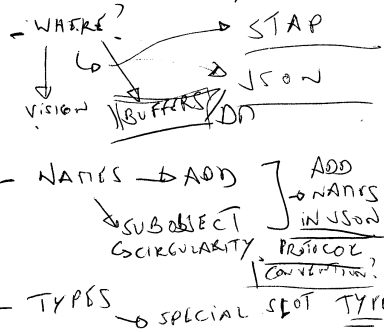 - WHERE?
STAP
JSON
VISION
BUFFERS
DM
- NAMES → ADD
SUBOBJECT
CIRCULARITY
ADD
→ NAMES
IN JSON
PROTOCOL
CONVENTION?
- TYPES
SPECIAL SLOT TYPE